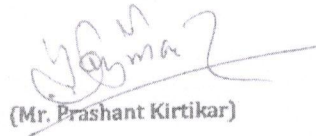 (Mr. Prashant Kirtikar)